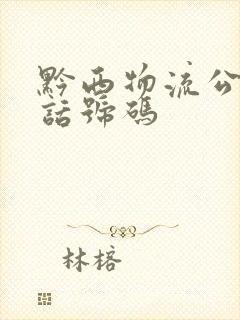 黔西物流公
話號碼
林榕